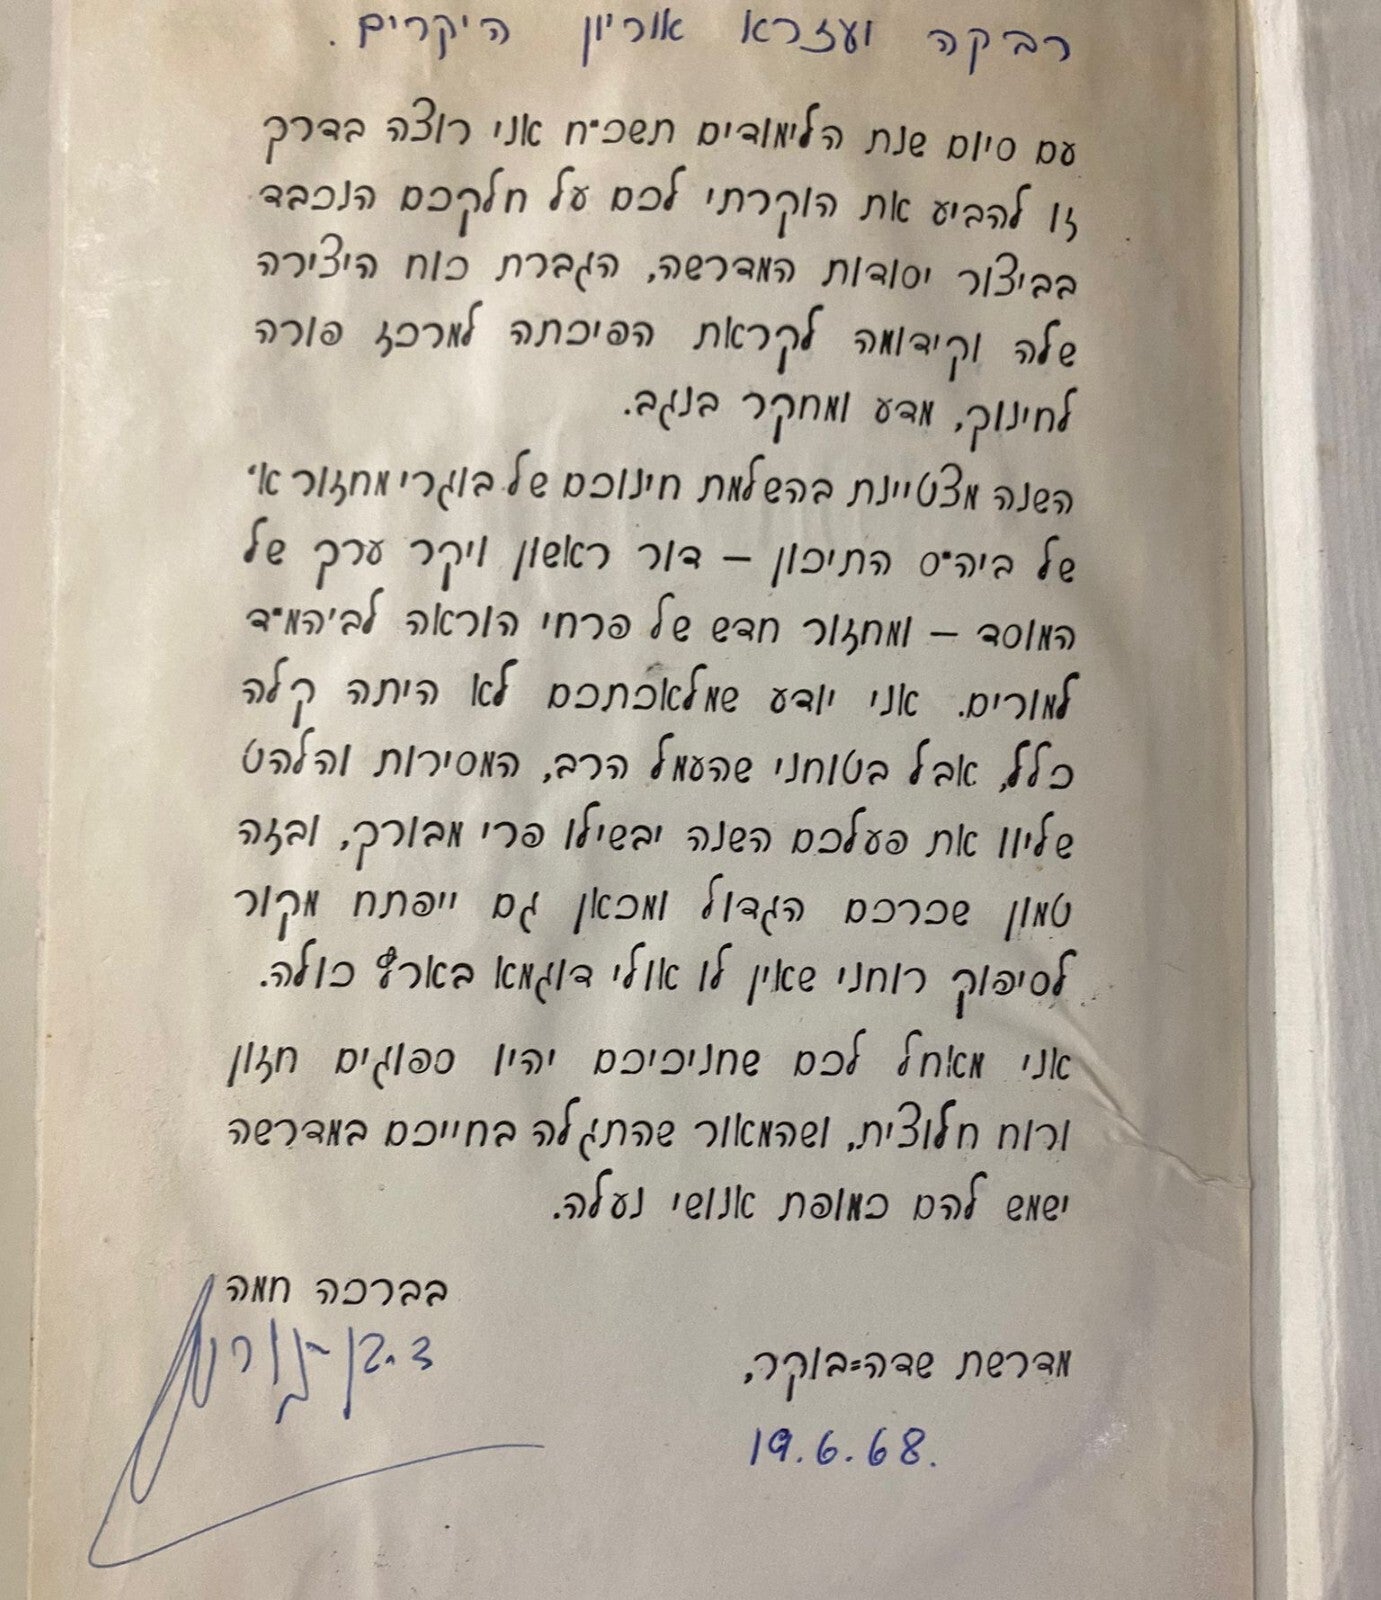 רבקה ועזרא אוריון היקרים.
עם סיום שנת הלימודים תשכ"ח אני רוצה בדרך
זו להביע את הוקרתי לכם על חלקכם הנכבד
בביצור יסודות המדרשה, הגברת כוח היצירה
שלה וקידומה לקראת הפיכתה למרכז פורה
לחינוך, מדע ומחקר בנגב.
השנה מצטיינת בהשלמת חינוכם של בוגרי מחזור א'
של ביה"ס התיכון – דור ראשון ויקר ערך של
המוסד – ומחזור חדש של פרחי הוראה לביהמ"ד
למורים. אני יודע שמלאכתכם לא היתה קלה
כלל, אבל בטוחני שהעמל הרב, המסירות והלהט
שליוו את פעלכם השנה יבשילו פרי מבורך, ובזה
טמון שכרכם הגדול ומכאן גם ייפתח מקור
לסיפוק רוחני שאין לו אולי דוגמא בארץ כולה.
אני מאחל לכם שחניכיכם יהיו ספוגים חזון
ורוח חלוצית, ושהמאור שהתגלה בחייכם במדרשה
ישמש להם כמופת אנושי נעלה.
בברכה חמה
ד. בן-גוריון
מדרשת שדה=בוקר,
19.6.68.